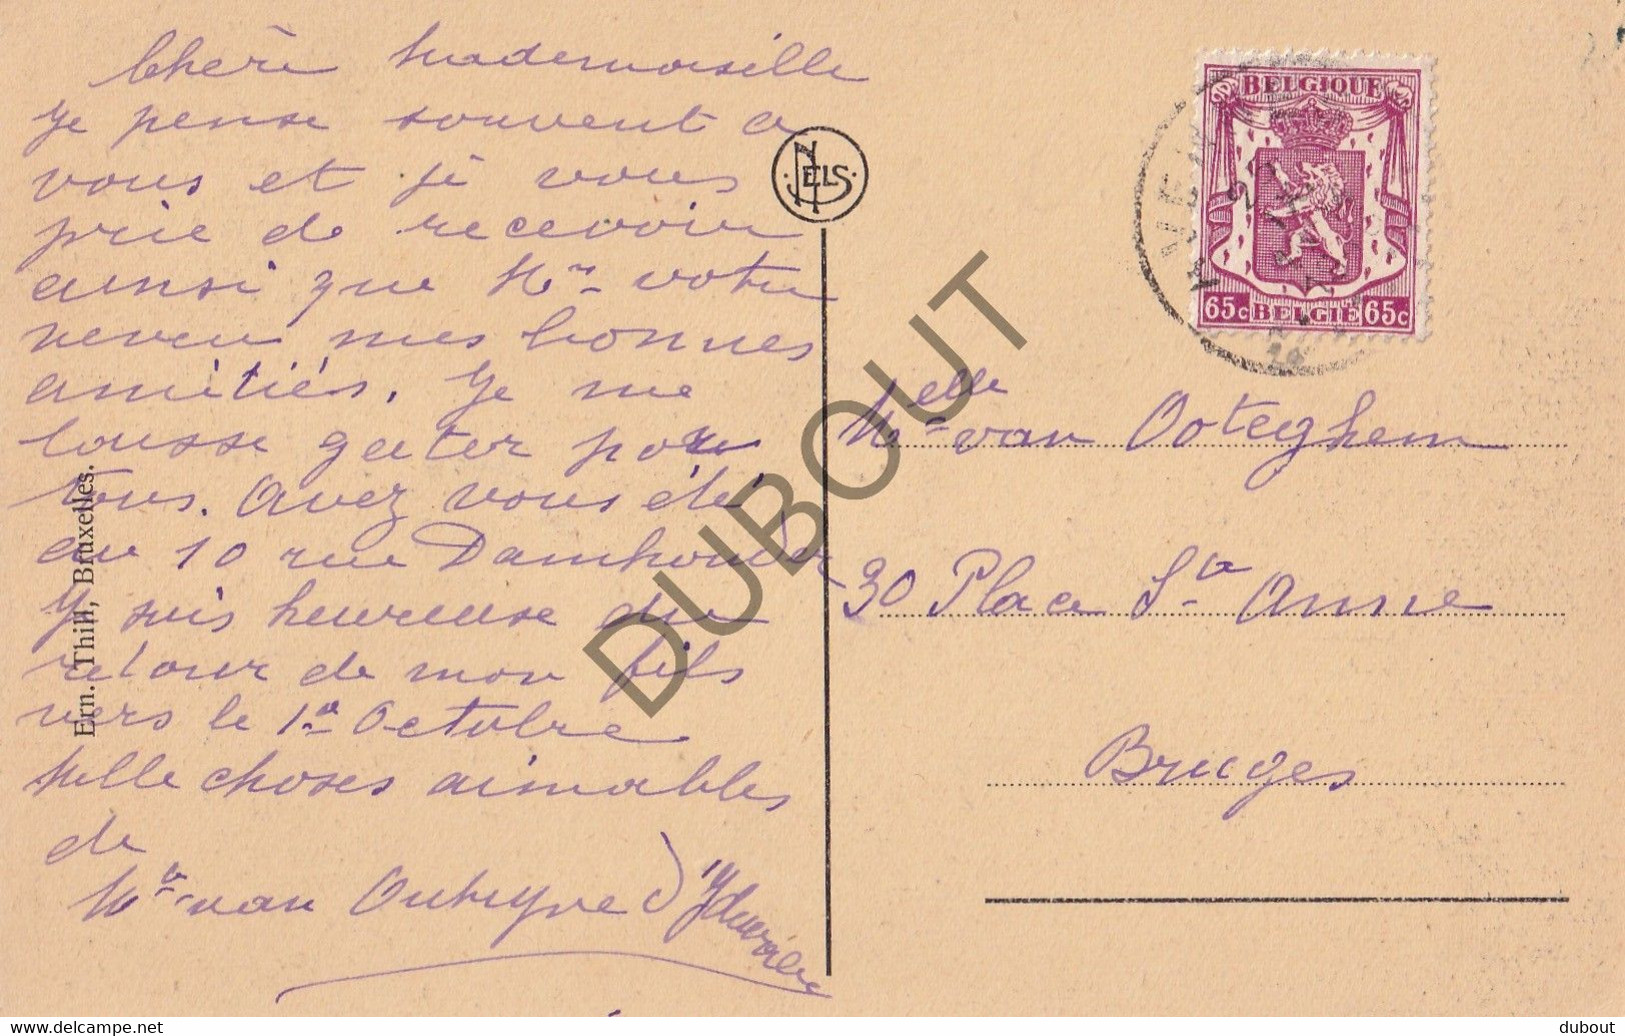 Chère Mademoiselle
Je pense souvent a
vous et je vous
prie de recevoir
ainsi que Mr votre
neveu mes bonnes
amitiés. Je me
laisse gater pour
tous. Avez vous été
au 10 rue Damhouder
Je suis heureuse du
retour de mon fils
vers le 1er Octobre
Mille choses aimables
de
van Outryve d'Ydewalle
Ern. Thill, Bruxelles.
NELS
BELGIQUE
65c BELGIE 65c
Melle van Ooteghem
30 Place Ste Anne
Bruges
DUBOUT
www.delcampe.net
dubout